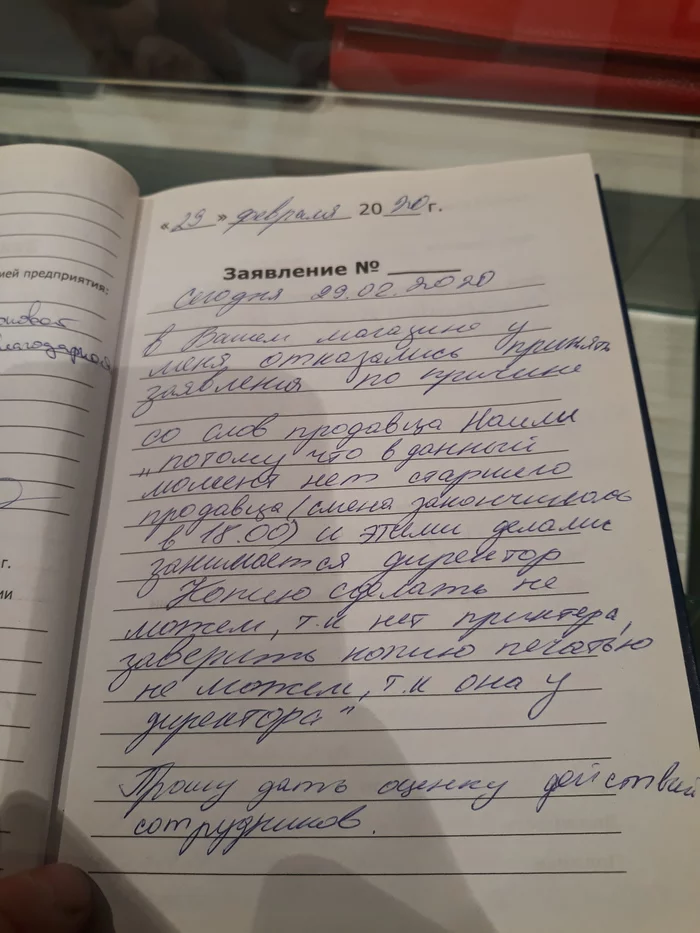 ией предприятия:
г.
ии
« 29 » февраля 20 20 г.
Заявление №
Сегодня 29.02.2020
в Вашем магазине у
меня отказались принять
заявления по причине
со слов продавца Наили
„потому что в данный
момент нет старшего
продавца (смена закончилась
в 18.00) и этими делами
занимается директор
Копию сделать не
можем, т.к нет принтера,
заверить копию печатью
не можем, т.к она у
директора"
Прошу дать оценку действий
сотрудников.